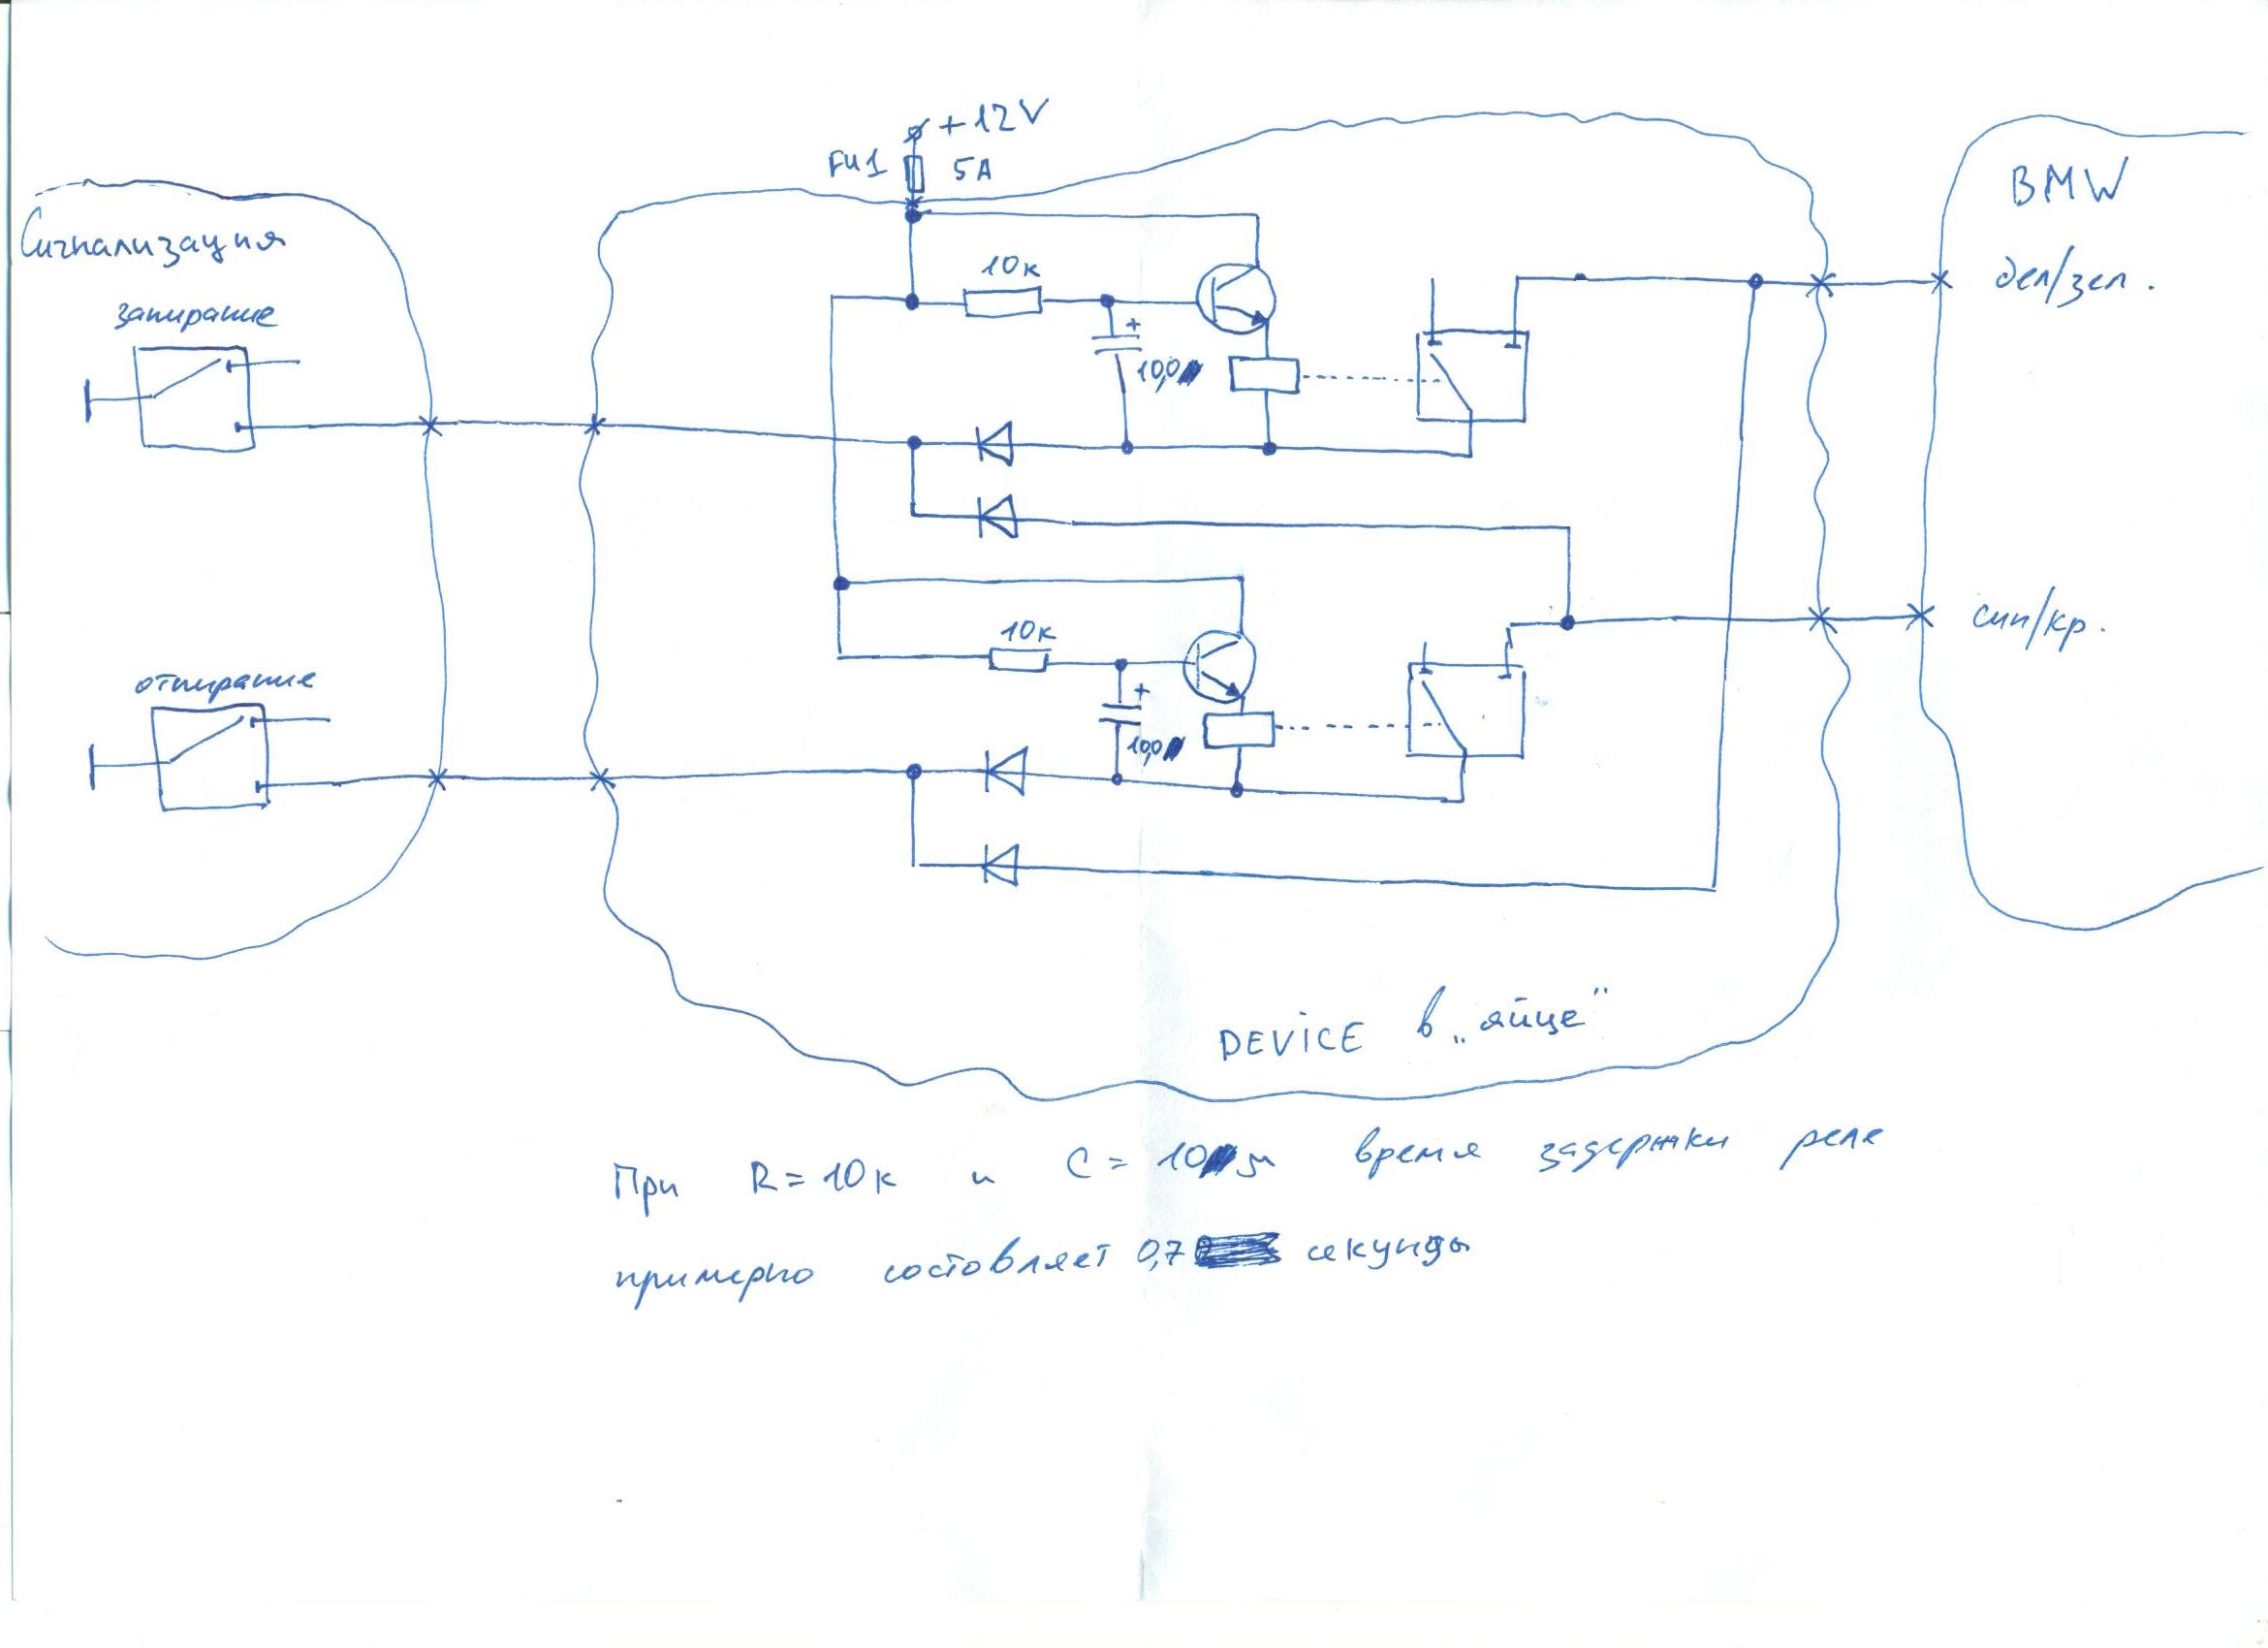 +12V
FU1 5A
BMW
Сигнализация
бел/зел.
запирание
10к
+
10,0
син/кр.
отпирание
10к
+
10,0
DEVICE в „яйце"
При R=10к и C=10м время задержки реле
примерно состовляет 0,7 секунды